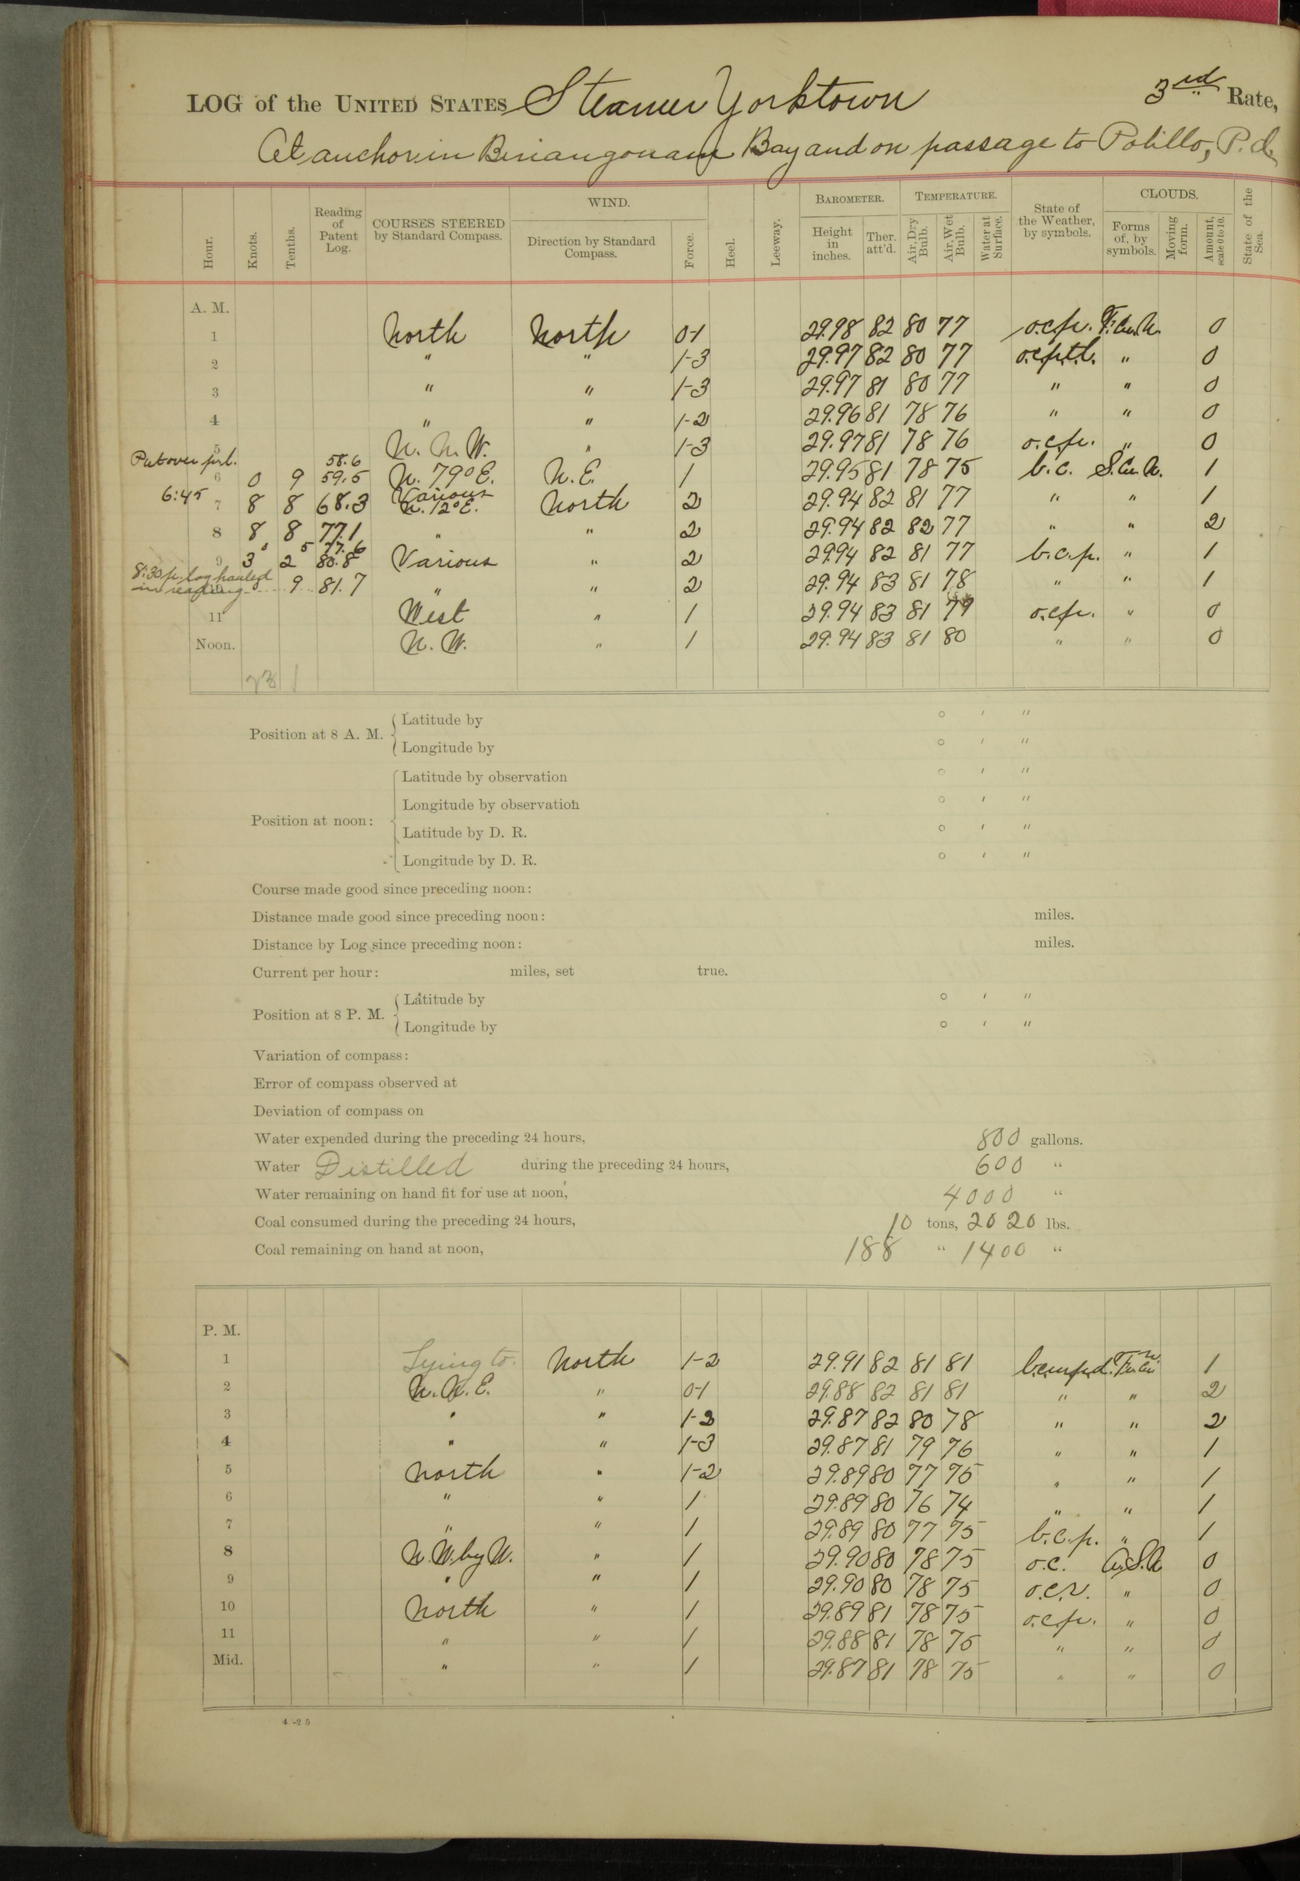 LOG of the UNITED STATES Steamer Yorktown 3rd Rate,
At anchor in Bay and on passage to Polillo, P.I.
Hour. Knots. Tenths. Reading of Patent Log. COURSES STEERED by Standard Compass. WIND. Direction by Standard Compass. Force. Heel. Leeway. BAROMETER. Height in inches. Ther. att'd. TEMPERATURE. Air, Dry Bulb. Air, Wet Bulb. Water at Surface. State of the Weather, by symbols. CLOUDS. Forms of, by symbols. Moving form. Amount, scale 0 to 10. State of the Sea.
A. M.
1 North North 0-1 29.98 82 80 77 o.c.p. 0
2 " " 1-3 29.97 82 80 77 o.c.p.t.l. " 0
3 " " 1-3 29.97 81 80 77 " " 0
4 " " 1-2 29.96 81 78 76 " " 0
5 N. N. W. " 1-3 29.97 81 78 76 o.c.p. " 0
Put over p.l. 58.6
6 0 9 59.5 N. 79° E. N. E. 1 29.95 81 78 75 b.c. S.Cu.N. 1
6:45 Various
7 8 8 68.3 N. 12° E. North 2 29.94 82 81 77 " " 1
8 8 8 77.1 " " 2 29.94 82 82 77 " " 2
5 77.6
9 3 2 80.8 Various " 2 29.94 82 81 77 b.c.p. " 1
8:30 p. log hauled
in reading 9 81.7 " " 2 29.94 83 81 78 " " 1
11 West " 1 29.94 83 81 79 o.c.p. " 0
Noon. N. W. " 1 29.94 83 81 80 " " 0
23 1
Position at 8 A. M. Latitude by ° ′ ″
Longitude by ° ′ ″
Position at noon: Latitude by observation ° ′ ″
Longitude by observation ° ′ ″
Latitude by D. R. ° ′ ″
Longitude by D. R. ° ′ ″
Course made good since preceding noon:
Distance made good since preceding noon: miles.
Distance by Log since preceding noon: miles.
Current per hour: miles, set true.
Position at 8 P. M. Latitude by ° ′ ″
Longitude by ° ′ ″
Variation of compass:
Error of compass observed at
Deviation of compass on
Water expended during the preceding 24 hours, 800 gallons.
Water Distilled during the preceding 24 hours, 600 "
Water remaining on hand fit for use at noon, 4000 "
Coal consumed during the preceding 24 hours, 10 tons, 2020 lbs.
Coal remaining on hand at noon, 188 " 1400 "
P. M.
1 Lying to. North 1-2 29.91 82 81 81 1
2 N. N. E. " 0-1 29.88 82 81 81 " " 2
3 " " 1-2 29.87 82 80 78 " " 2
4 " " 1-3 29.87 81 79 76 " " 1
5 North " 1-2 29.89 80 77 75 " " 1
6 " " 1 29.89 80 76 74 " " 1
7 " " 1 29.89 80 77 75 b.c.p. " 1
8 N. W. by N. " 1 29.90 80 78 75 o.c. 0
9 " " 1 29.90 80 78 75 o.c.r. " 0
10 North " 1 29.89 81 78 75 o.c.p. " 0
11 " " 1 29.88 81 78 75 " " 0
Mid. " " 1 29.87 81 78 75 " " 0
4-25